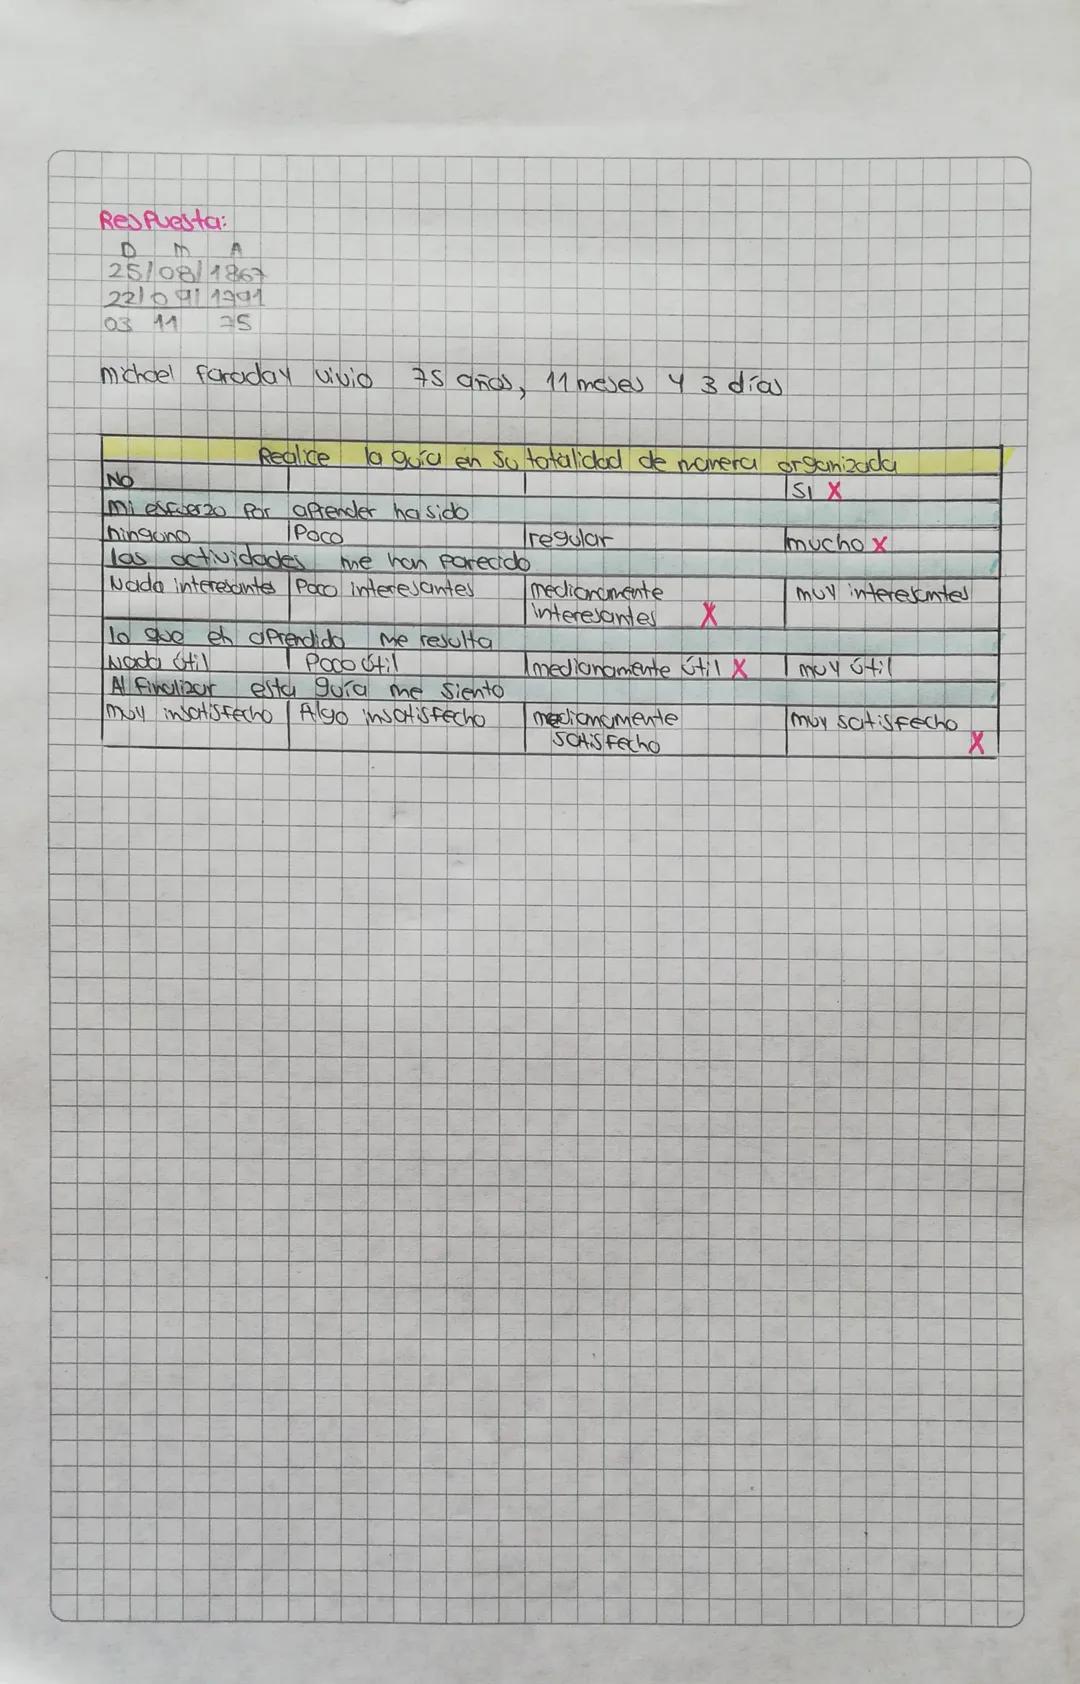 Respuesta:
D M A
25/08/1867
22/09/1791
03 11 75
michael faraday vivio 75 años, 11 meses y 3 días
Realice la guía en su totalidad de manera organizada
NO SI X
mi esfuerzo por aprender ha sido
ninguno Poco regular mucho X
las actividades me han parecido
Nada interesantes Poco interesantes medianamente interesantes X muy interesantes
lo que eh aprendido me resulta
Nada útil Poco útil medianamente útil X muy útil
Al finalizar esta guía me siento
muy insatisfecho Algo insatisfecho medianamente satisfecho muy satisfecho X